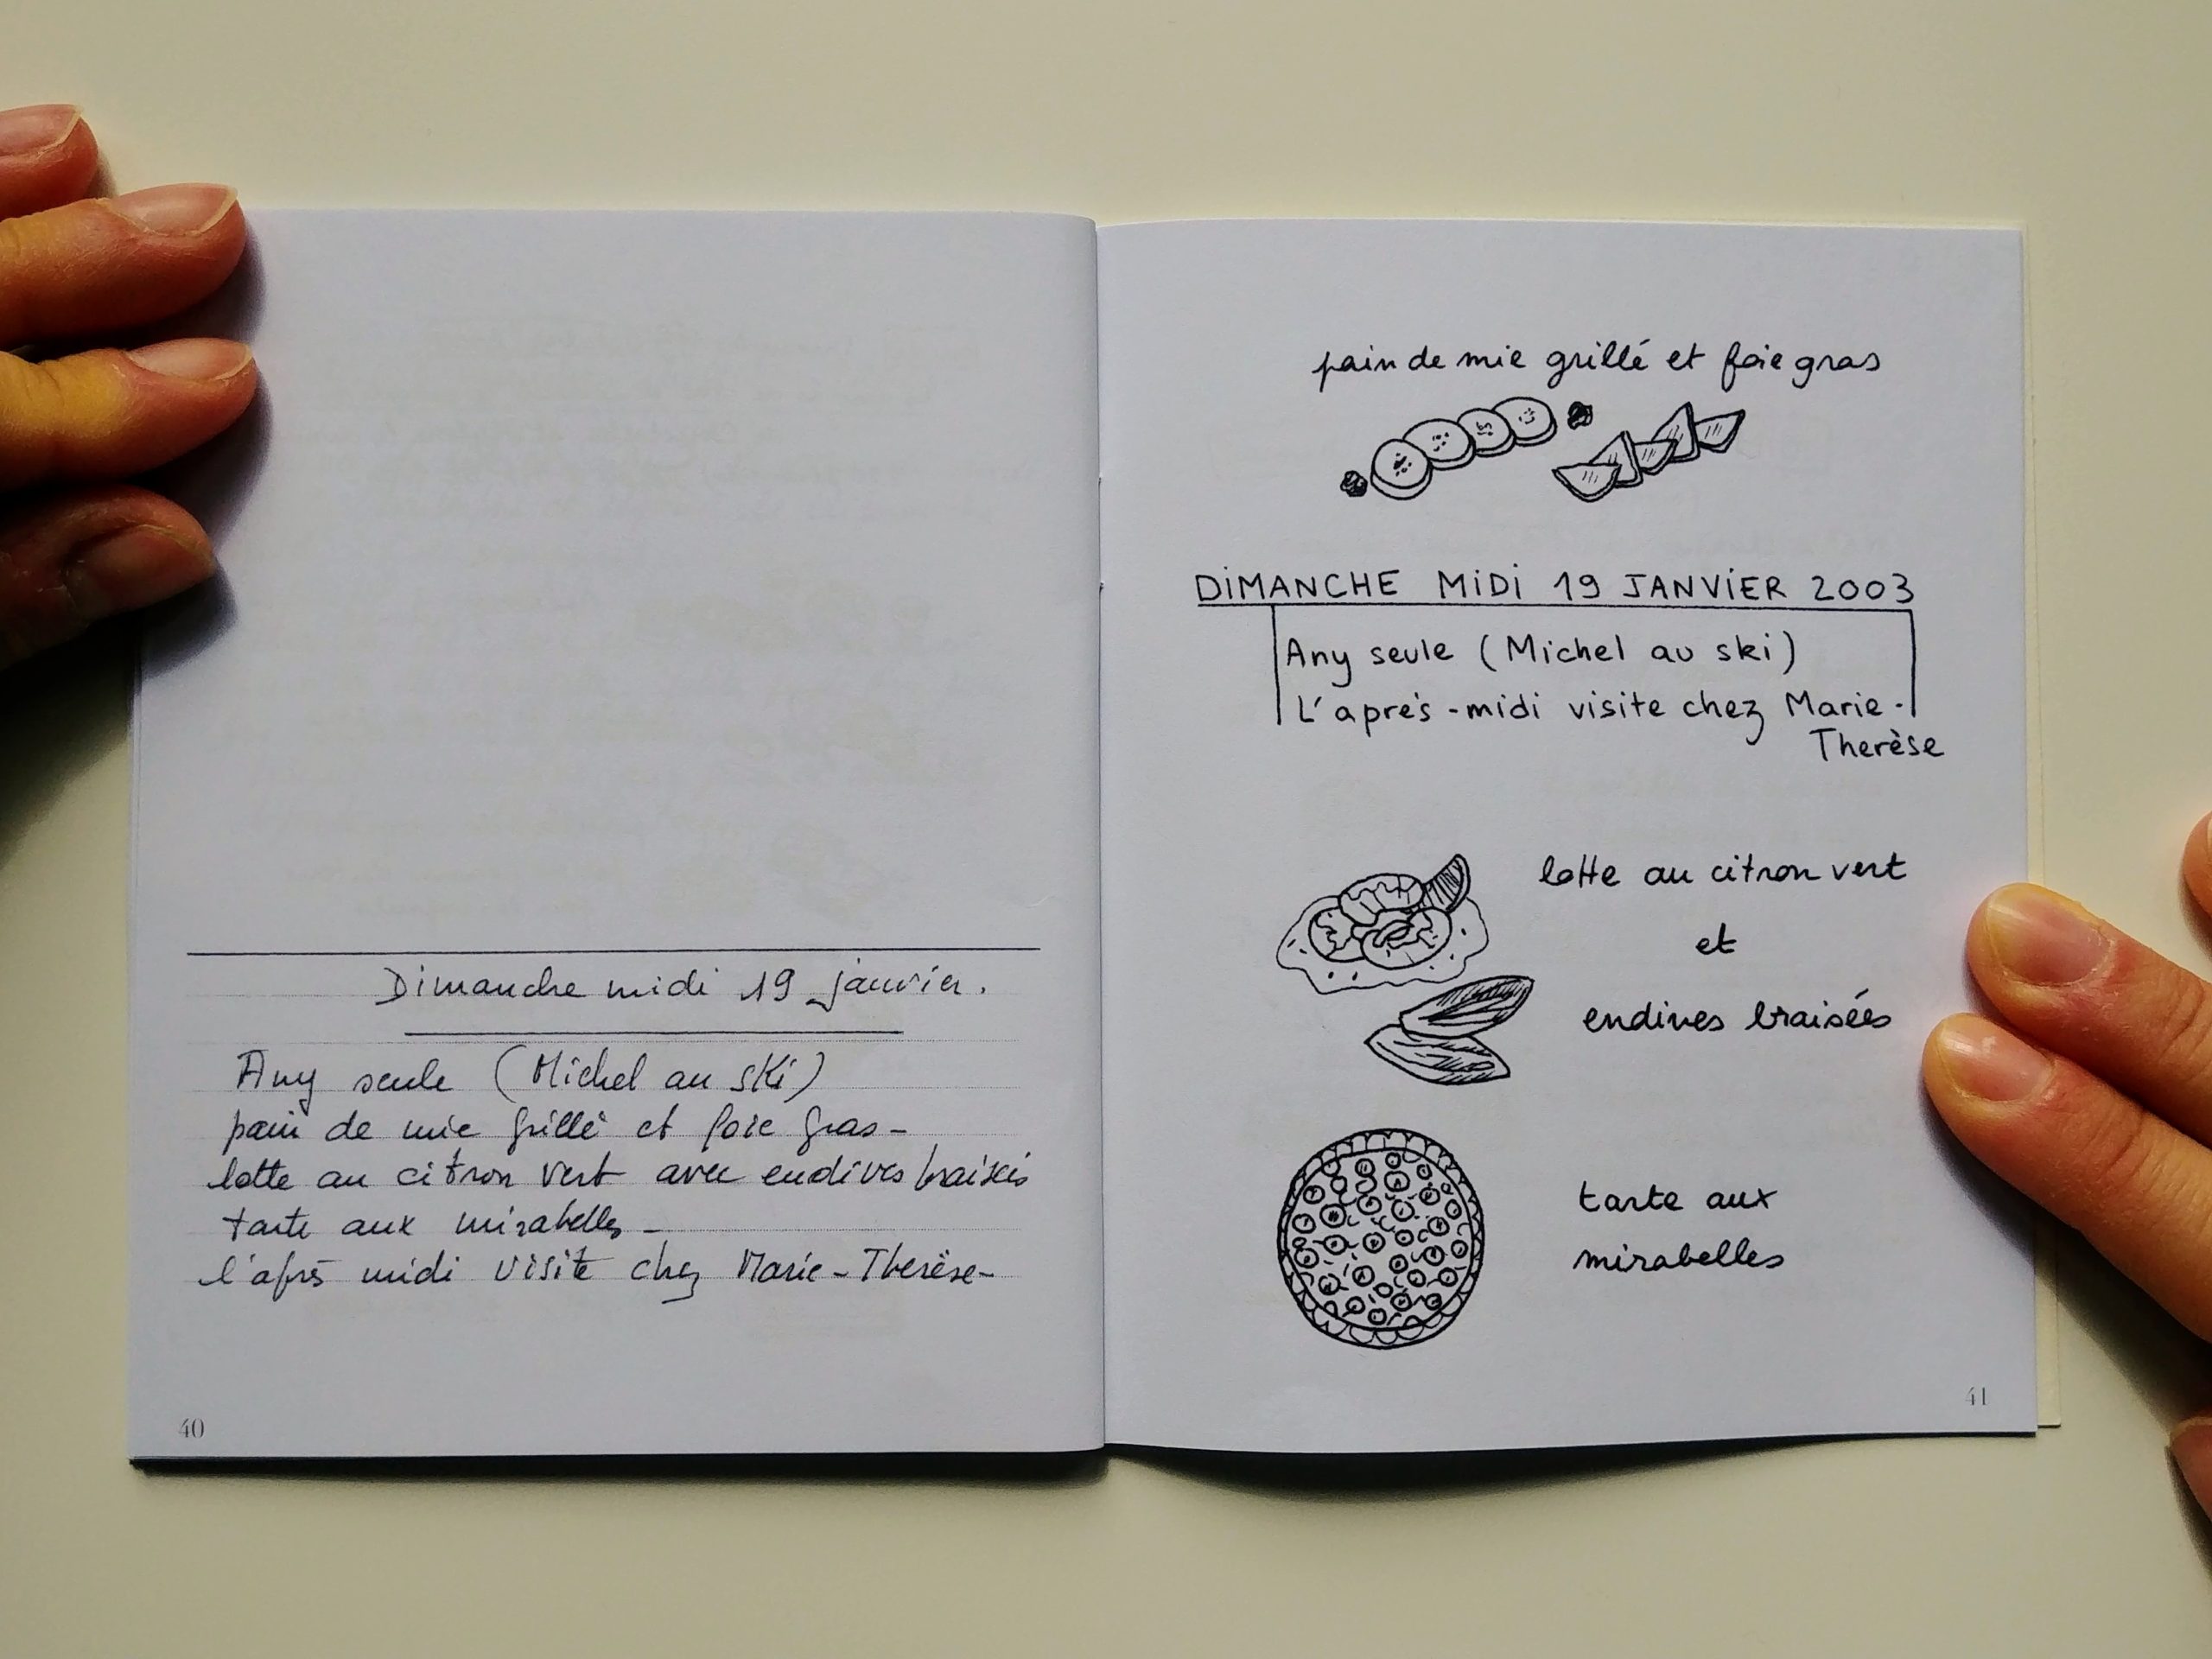 Dimanche midi 19 janvier.
Any seule (Michel au ski)
pain de mie grillé et foie gras -
lotte au citron vert avec endives braisées
tarte aux mirabelles -
l'après midi visite chez Marie - Therèse -
40
pain de mie grillé et foie gras
DIMANCHE MIDI 19 JANVIER 2003
Any seule (Michel au ski)
L'après-midi visite chez Marie-
Therèse
lotte au citron vert
et
endives braisées
tarte aux
mirabelles
41